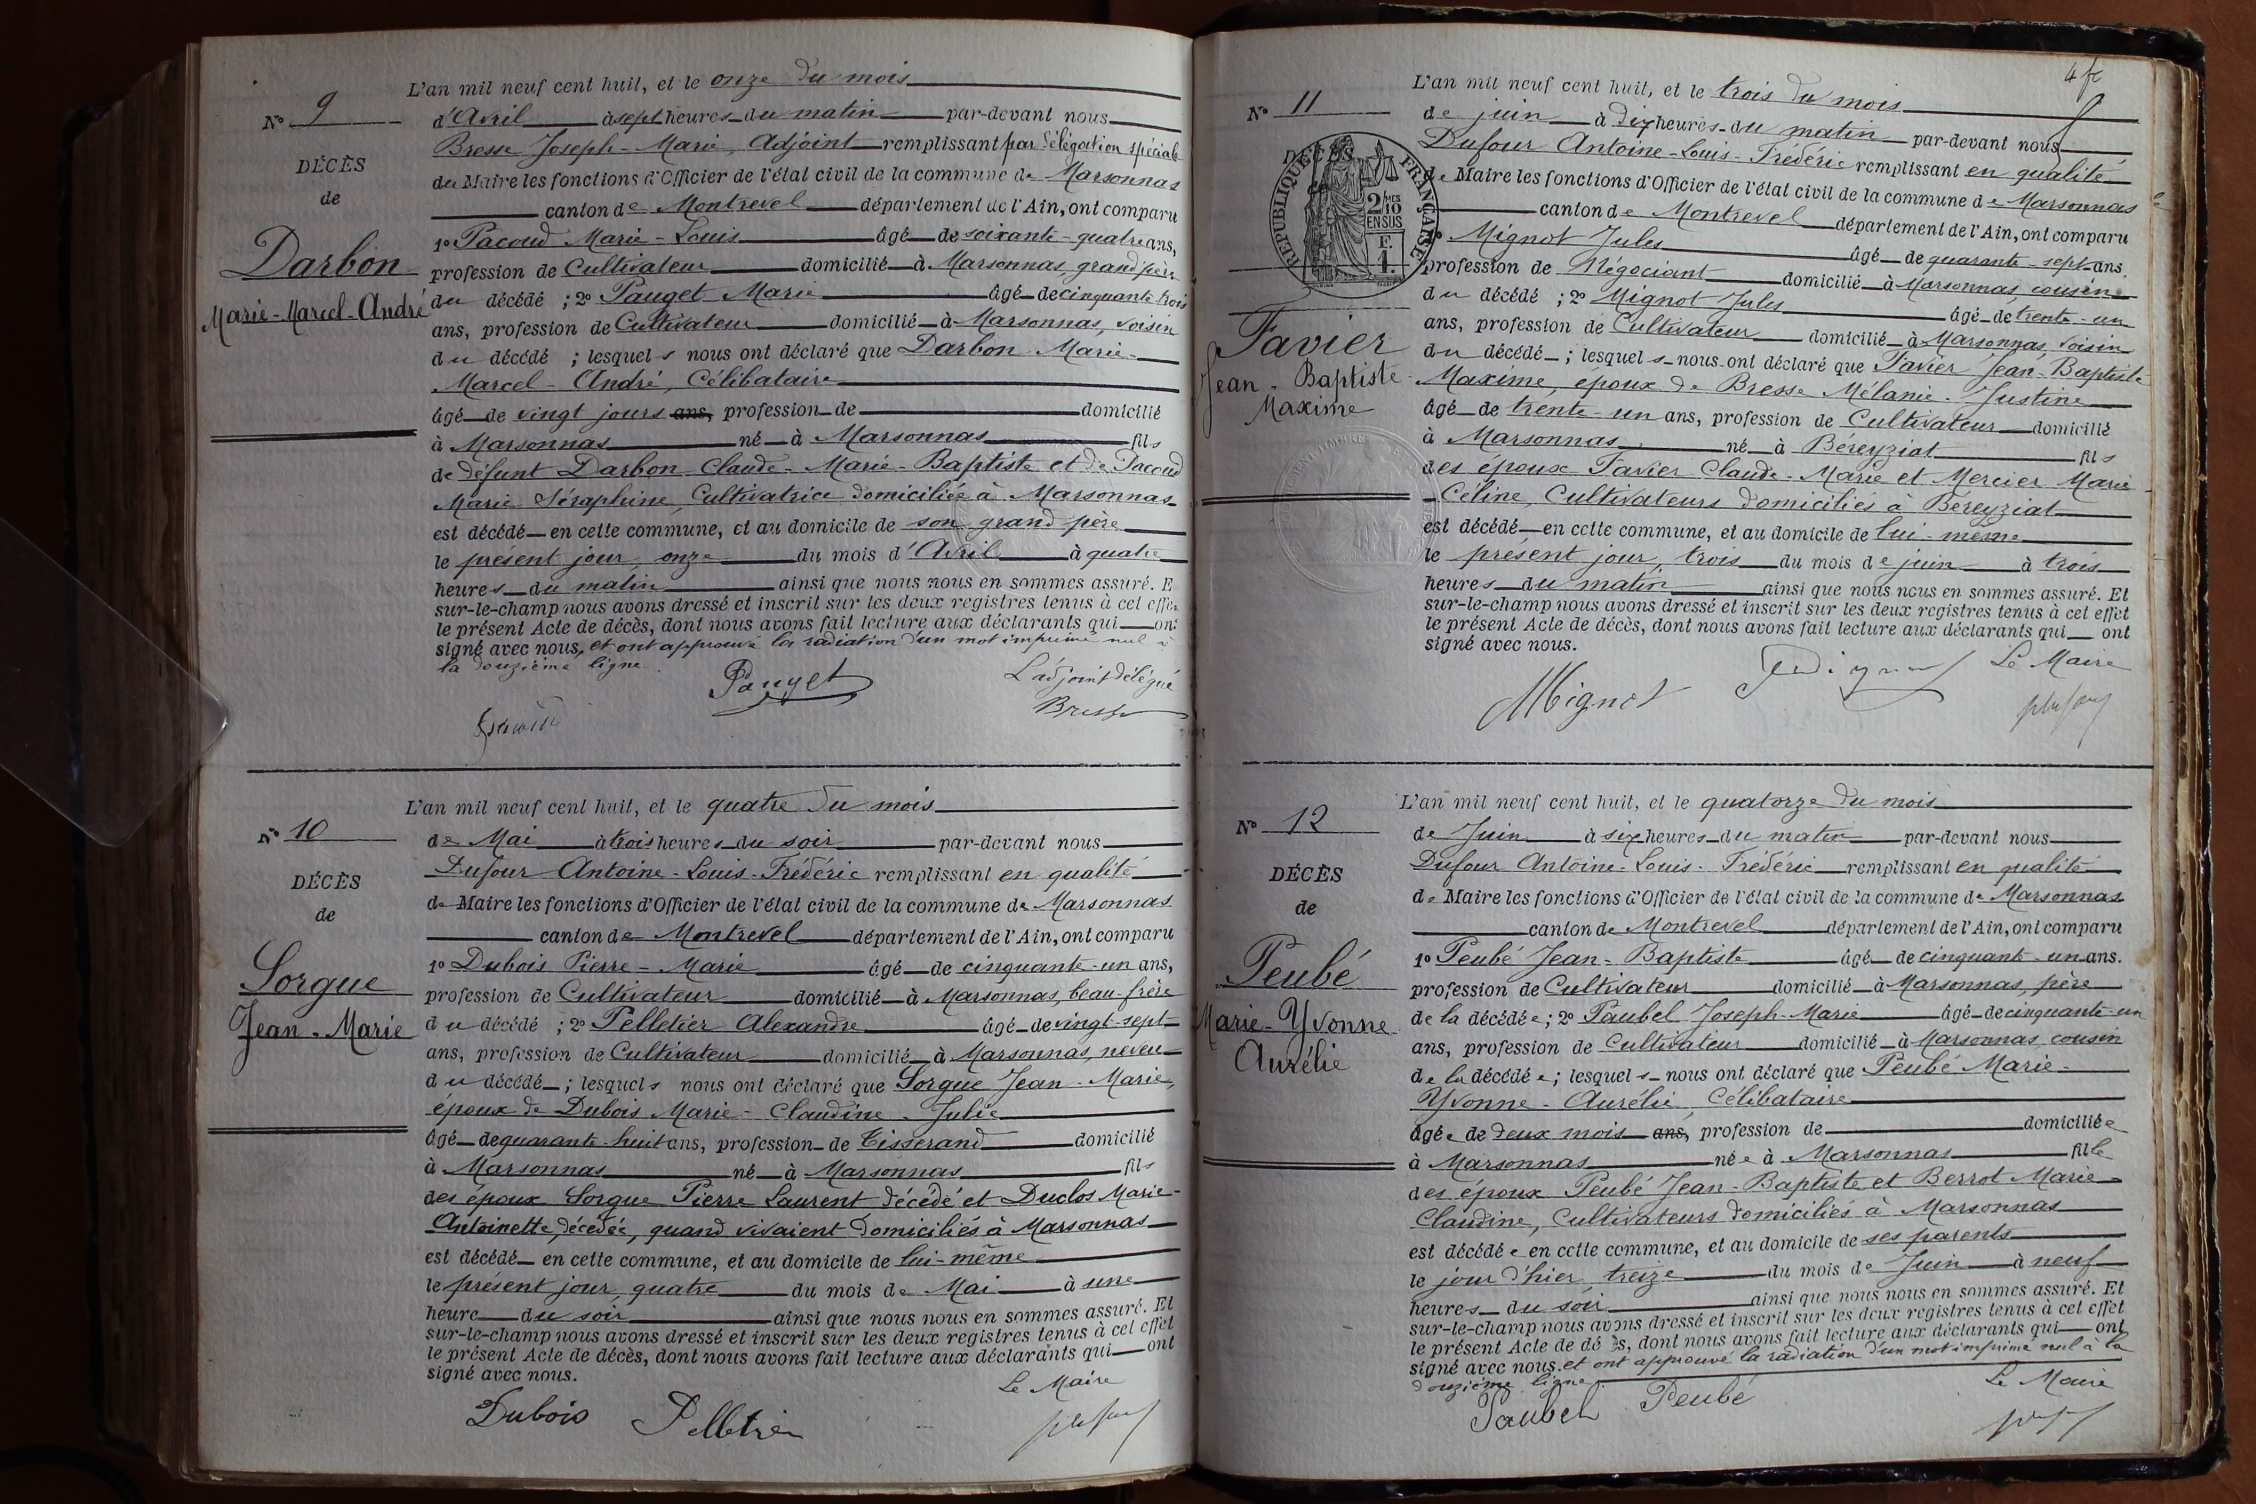 L'an mil neuf cent huit, et le onze du mois
N° 9
d'Avril à sept heures du matin par-devant nous
Bresse Joseph-Marie, Adjoint remplissant par délégation spéciale
DÉCÈS
du Maire les fonctions d'Officier de l'état civil de la commune de Marsonnas
de
canton de Montrevel département de l'Ain, ont comparu
Darbon
Marie-Marcel-André
1° Pacoud Marie-Louis âgé de soixante-quatre ans,
profession de Cultivateur domicilié à Marsonnas, grand père
du décédé ; 2° Pauget Marie âgé de cinquante trois
ans, profession de Cultivateur domicilié à Marsonnas, voisin
du décédé ; lesquels nous ont déclaré que Darbon Marie-
Marcel-André, Célibataire
âgé de vingt jours ans, profession de domicilié
à Marsonnas né à Marsonnas fils
de défunt Darbon Claude-Marie-Baptiste et de Pacoud
Marie Séraphine, Cultivatrice domiciliée à Marsonnas
est décédé en cette commune, et au domicile de son grand-père
le présent jour, onze du mois d'Avril à quatre
heures du matin ainsi que nous nous en sommes assuré. E
sur-le-champ nous avons dressé et inscrit sur les deux registres tenus à cet effe
le présent Acte de décès, dont nous avons fait lecture aux déclarants qui ont
signé avec nous, et ont approuvé la radiation d'un mot imprimé nul à
la douzième ligne
Pauget
L'adjoint délégué
Bresse
L'an mil neuf cent huit, et le quatre du mois
N° 10
de Mai à trois heures du soir par-devant nous
Dufour Antoine-Louis-Frédéric remplissant en qualité
DÉCÈS
de Maire les fonctions d'Officier de l'état civil de la commune de Marsonnas
de
canton de Montrevel département de l'Ain, ont comparu
Sorgue
Jean-Marie
1° Dubois Pierre-Marie âgé de cinquante-un ans,
profession de Cultivateur domicilié à Marsonnas, beau-frère
du décédé ; 2° Pelletier Alexandre âgé de vingt-sept
ans, profession de Cultivateur domicilié à Marsonnas, neveu
du décédé ; lesquels nous ont déclaré que Sorgue Jean-Marie,
époux de Dubois Marie-Claudine-Julie
âgé de quarante-huit ans, profession de Tisserand domicilié
à Marsonnas né à Marsonnas fils
des époux Sorgue Pierre Laurent décédé et Duclos Marie-
Antoinette, décédée, quand vivaient domiciliés à Marsonnas
est décédé en cette commune, et au domicile de lui-même
le présent jour, quatre du mois de Mai à une
heure du soir ainsi que nous nous en sommes assuré. Et
sur-le-champ nous avons dressé et inscrit sur les deux registres tenus à cet effet
le présent Acte de décès, dont nous avons fait lecture aux déclarants qui ont
signé avec nous.
Le Maire
Dubois Pelletier
4 fr
L'an mil neuf cent huit, et le trois du mois
N° 11
de juin à dix heures du matin par-devant nous
Dufour Antoine-Louis-Frédéric remplissant en qualité
DÉCÈS
de
RÉPUBLIQUE FRANÇAISE
2/10 MES EN SUS
F. 1.
de Maire les fonctions d'Officier de l'état civil de la commune de Marsonnas
canton de Montrevel département de l'Ain, ont comparu
1° Mignot Jules âgé de quarante-sept ans,
profession de Négociant domicilié à Marsonnas, cousin
Favier
Jean-Baptiste
Maxime
du décédé ; 2° Mignot Jules âgé de trente-un
ans, profession de Cultivateur domicilié à Marsonnas, voisin
du décédé ; lesquels nous ont déclaré que Favier Jean-Baptiste
Maxime, époux de Bresse Mélanie-Justine
âgé de trente-un ans, profession de Cultivateur domicilié
à Marsonnas né à Béreyziat fils
des époux Favier Claude-Marie et Mercier Marie
-Céline, Cultivateurs domiciliés à Béreyziat
est décédé en cette commune, et au domicile de lui-même
le présent jour, trois du mois de juin à trois
heures du matin ainsi que nous nous en sommes assuré. Et
sur-le-champ nous avons dressé et inscrit sur les deux registres tenus à cet effet
le présent Acte de décès, dont nous avons fait lecture aux déclarants qui ont
signé avec nous.
Le Maire
Mignot
L'an mil neuf cent huit, et le quatorze du mois
N° 12
de Juin à six heures du matin par-devant nous
Dufour Antoine-Louis-Frédéric remplissant en qualité
DÉCÈS
de Maire les fonctions d'Officier de l'état civil de la commune de Marsonnas
de
canton de Montrevel département de l'Ain, ont comparu
Peubé
Marie-Yvonne
Aurélie
1° Peubé Jean-Baptiste âgé de cinquante-un ans.
profession de Cultivateur domicilié à Marsonnas, père
de la décédée ; 2° Paubel Joseph-Marie âgé de cinquante-un
ans, profession de Cultivateur domicilié à Marsonnas cousin
de la décédée ; lesquels nous ont déclaré que Peubé Marie-
Yvonne-Aurélie, Célibataire
âgée de deux mois ans, profession de domiciliée
à Marsonnas née à Marsonnas fille
des époux Peubé Jean-Baptiste et Berrot Marie
Claudine, Cultivateurs domiciliés à Marsonnas
est décédée en cette commune, et au domicile de ses parents
le jour d'hier, treize du mois de Juin à neuf
heures du soir ainsi que nous nous en sommes assuré. Et
sur-le-champ nous avons dressé et inscrit sur les deux registres tenus à cet effet
le présent Acte de dé ès, dont nous avons fait lecture aux déclarants qui ont
signé avec nous. et ont approuvé la radiation d'un mot imprimé nul à la
douzième ligne
Le Maire
Paubel Peubé